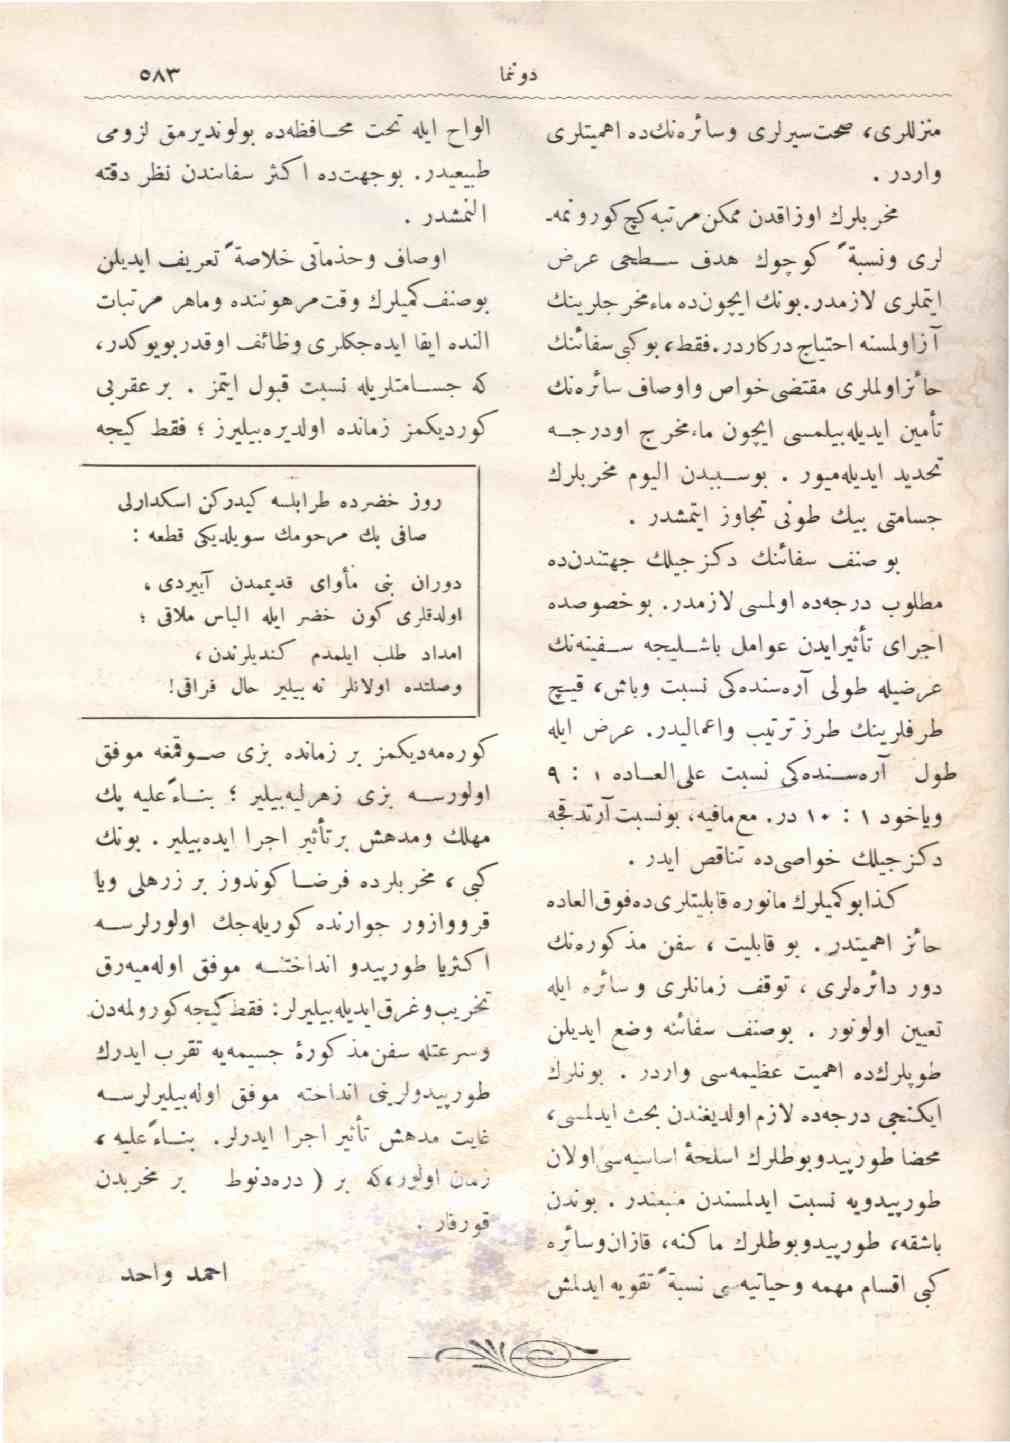 دوننما
٥٨٣
منزللری، صحت‌سیرلری وسائره‌نك‌ده اهمیتلری
واردر .
مخربلرك اوزاقدن ممکن مرتبه کچ کورونمه‌ـ
لری ونسبةً کوچوك هدف سطحی عرض
ایتملری لازمدر. بونك ایچون‌ده ماء مخرجلرینك
آز اولمسنه احتیاج درکاردر. فقط، بو کبی سفائنك
حائز اولملری مقتضی خواص واوصاف سائره‌نك
تأمین ایدیله‌بیلمسی ایچون ماء مخرج اودرجه
تحدید ایدیله‌میور . بوسببدن الیوم مخربلرك
جسامتی بیك طونی تجاوز ایتمشدر .
بو صنف سفائنك دکزجیلك جهتندن‌ده
مطلوب درجه‌ده اولمسی لازمدر. بو خصوصده
اجرای تأثیرایدن عوامل باشلیجه سفینه‌نك
عرضیله طولی آره‌سنده‌کی نسبت وباش، قیچ
طرفلرینك طرز ترتیب واعمالیدر. عرض ایله
طول آره‌سنده‌کی نسبت علی‌العاده ١ : ٩
ویاخود ١ : ١٠ در. مع‌مافیه، بونسبت آرتدقجه
دکزجیلك خواصی‌ده تناقص ایدر .
کذا بوکمیلرك مانوره قابلیتلری‌ده فوق‌العاده
حائز اهمیتدر. بو قابلیت ، سفن مذکوره‌نك
دور دائره‌لری ، توقف زمانلری وسائره ایله
تعیین اولونور . بوصنف سفائنه وضع ایدیلن
طوپلرك‌ده اهمیت عظیمه‌سی واردر . بونلرك
ایکنجی درجه‌ده لازم اولدیغندن بحث ایدلمسی،
محضا طورپیدوبوطلرك اسلحهٔ اساسیه‌سی اولان
طورپیدویه نسبت ایدلمسندن منبعثدر . بوندن
باشقه، طورپیدوبوطلرك ماکنه، قازان وسائره
کبی اقسام مهمه وحیاتیه‌سی نسبةً تقویه ایدلمش
الواح ایله تحت محافظه‌ده بولوندیرمق لزومی
طبیعیدر. بوجهت‌ده اکثر سفائندن نظر دقته
النمشدر .
اوصاف وخدماتی خلاصةً تعریف ایدیلن
بوصنف کمیلرك وقت مرهوننده وماهر مرتبات
النده ایفا ایده‌جکلری وظائف اوقدر بویوکدر،
که جسامتلریله نسبت قبول ایتمز . بر عقربی
کوردیکمز زمانده اولدیره‌بیلیرز ؛ فقط کیجه
روز خضرده طرابلسه کیدرکن اسکدارلی
صافی بك مرحومك سویلدیکی قطعه :
دوران بنی مأوای قدیممدن آییردی ،
اولدقلری کون خضر ایله الیاس ملاقی ؛
امداد طلب ایلمدم کندیلرندن ،
وصلتده اولانلر نه بیلیر حال فراقی!
کوره‌مه‌دیکمز بر زمانده بزی صوقمغه موفق
اولورسه بزی زهرلیه‌بیلیر ؛ بناءً علیه پك
مهلك ومدهش بر تأثیر اجرا ایده‌بیلیر . بونك
کبی ، مخربلرده فرضا کوندوز بر زرهلی ویا
قرووازور جوارنده کوریله‌جك اولورلرسه
اکثریا طورپیدو انداختنه موفق اوله‌میه‌رق
تخریب وغرق ایدیله‌بیلیرلر: فقط کیجه کورولمه‌دن
وسرعتله سفن مذکورهٔ جسیمه‌یه تقرب ایدرك
طورپیدولرینی انداخته موفق اوله‌بیلیرلرسه
غایت مدهش تأثیر اجرا ایدرلر. بناءً علیه ،
زمان اولور،که بر ( دره‌دنوط بر مخربدن
قورقار .
احمد واحد